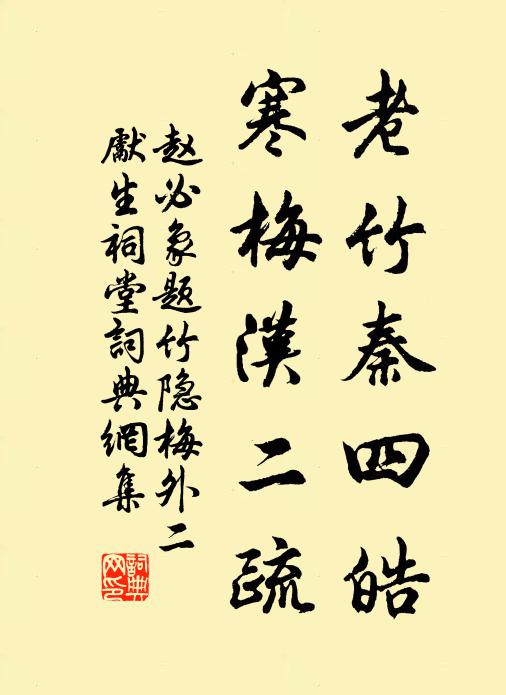 老竹秦四皓
寒梅漢二疏
赵必象题竹隐梅外二
獻生祠堂詞典網集
詞典网印